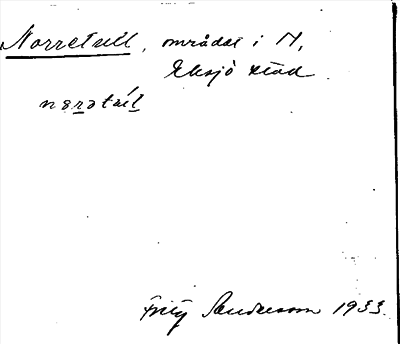 Norretull, området i N,
Eksjö stad.
Fritz Sanderson 1933.